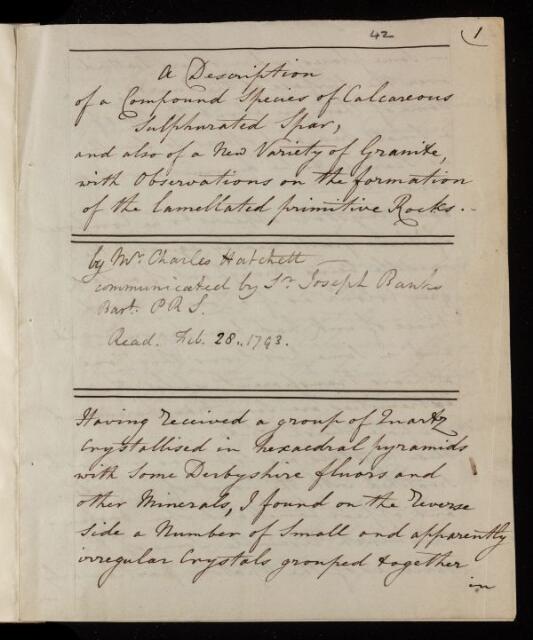 42
1
A Description
of a Compound Species of Calcareous
Sulphurated Spar,
and also of a New Variety of Granite,
with Observations on the formation
of the lamellated primitive Rocks.
by Mr. Charles Hatchett
communicated by Sr. Joseph Banks
Bart. P R S.
Read. Feb. 28. 1793.
Having received a group of Quartz
Crystallised in hexaedral pyramids
with some Derbyshire fluors and
other Minerals, I found on the reverse
side a Number of Small and apparently
irregular Crystals grouped together
in